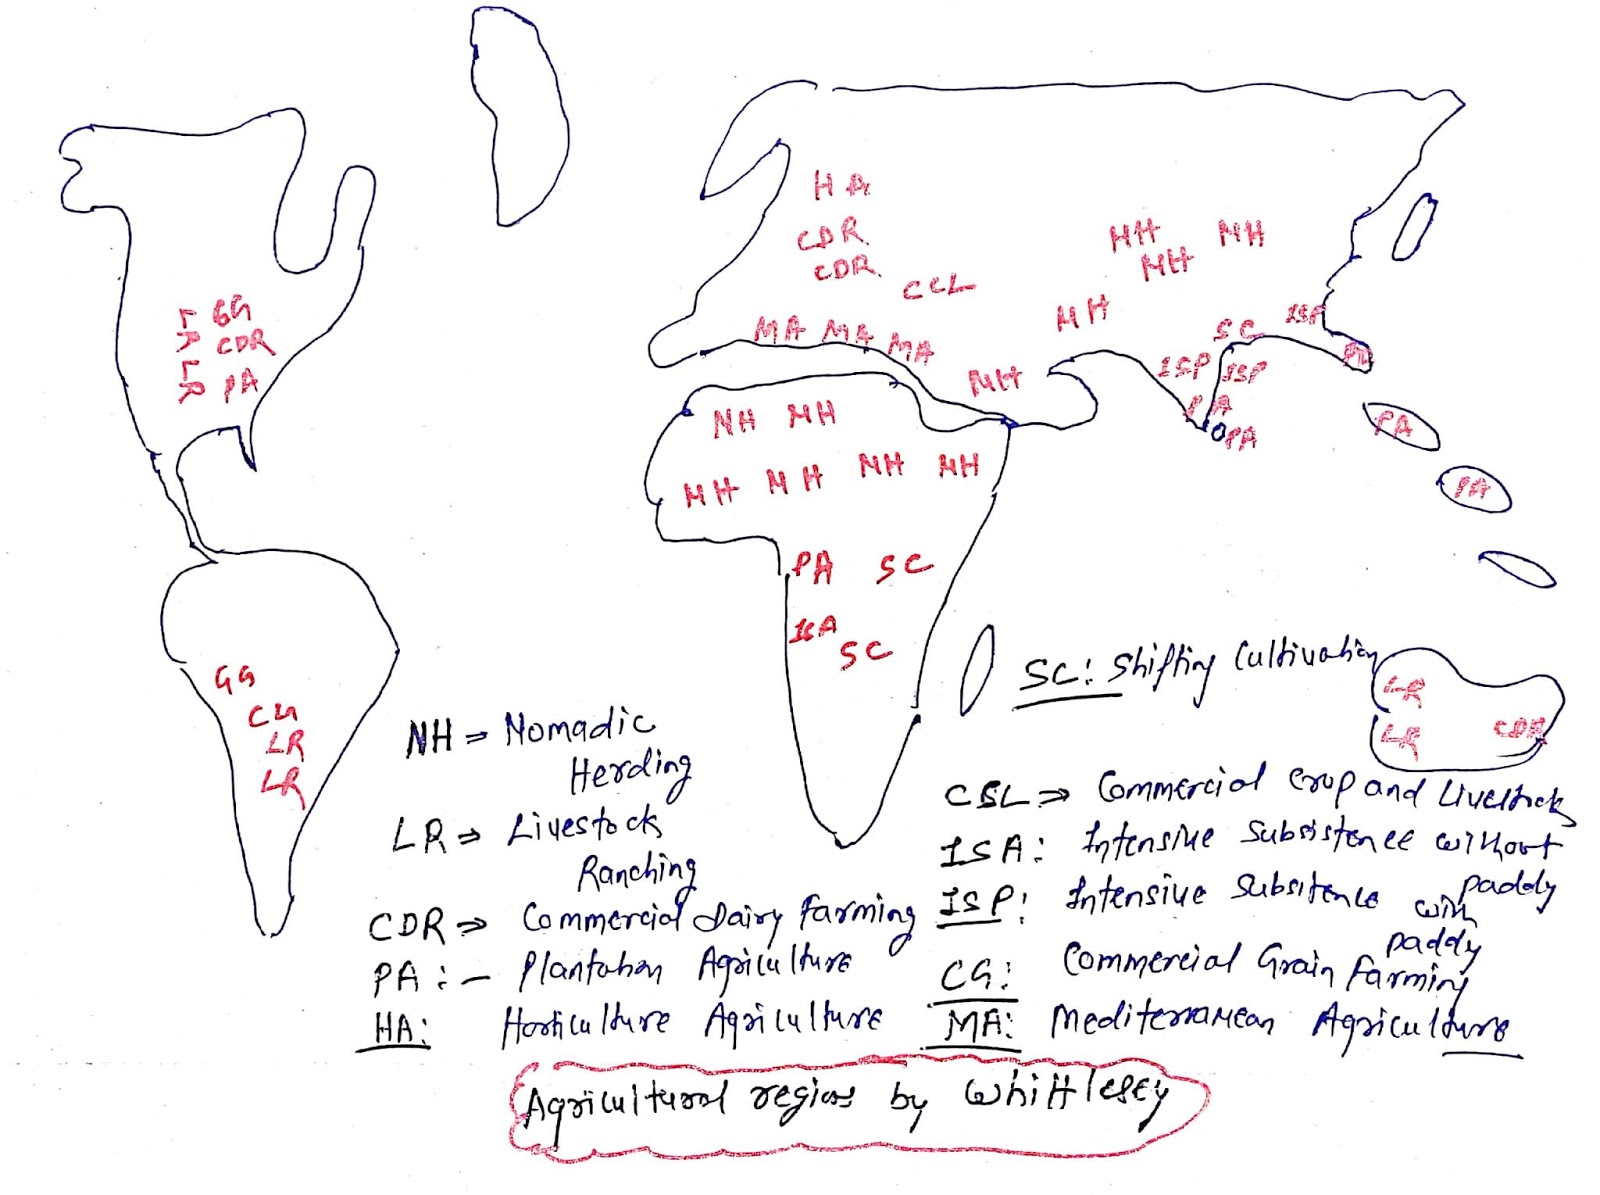 HA
CDR
CDR
CCL
MA MA MA
NH NH
NH
NH
NH
ISP
SC
ISP ISP
PA
PA
PA
PA
LR
LR
GG
CDR
PA
NH NH
NH NH NH NH
PA SC
ISA
SC
GG
CG
LR
LR
LR
LR CDR
SC: Shifting Cultivation
NH ⇒ Nomadic
Herding
LR ⇒ Livestock
Ranching
CDR ⇒ Commercial Dairy Farming
PA :- Plantation Agriculture
HA: Horticulture Agriculture
CCL ⇒ Commercial Crop and Livestock
ISA: Intensive Subsistence without
paddy
ISP: Intensive Subsitence with
paddy
CG: Commercial Grain Farming
MA: Mediterranean Agriculture
Agricultural regions by Whittlesey